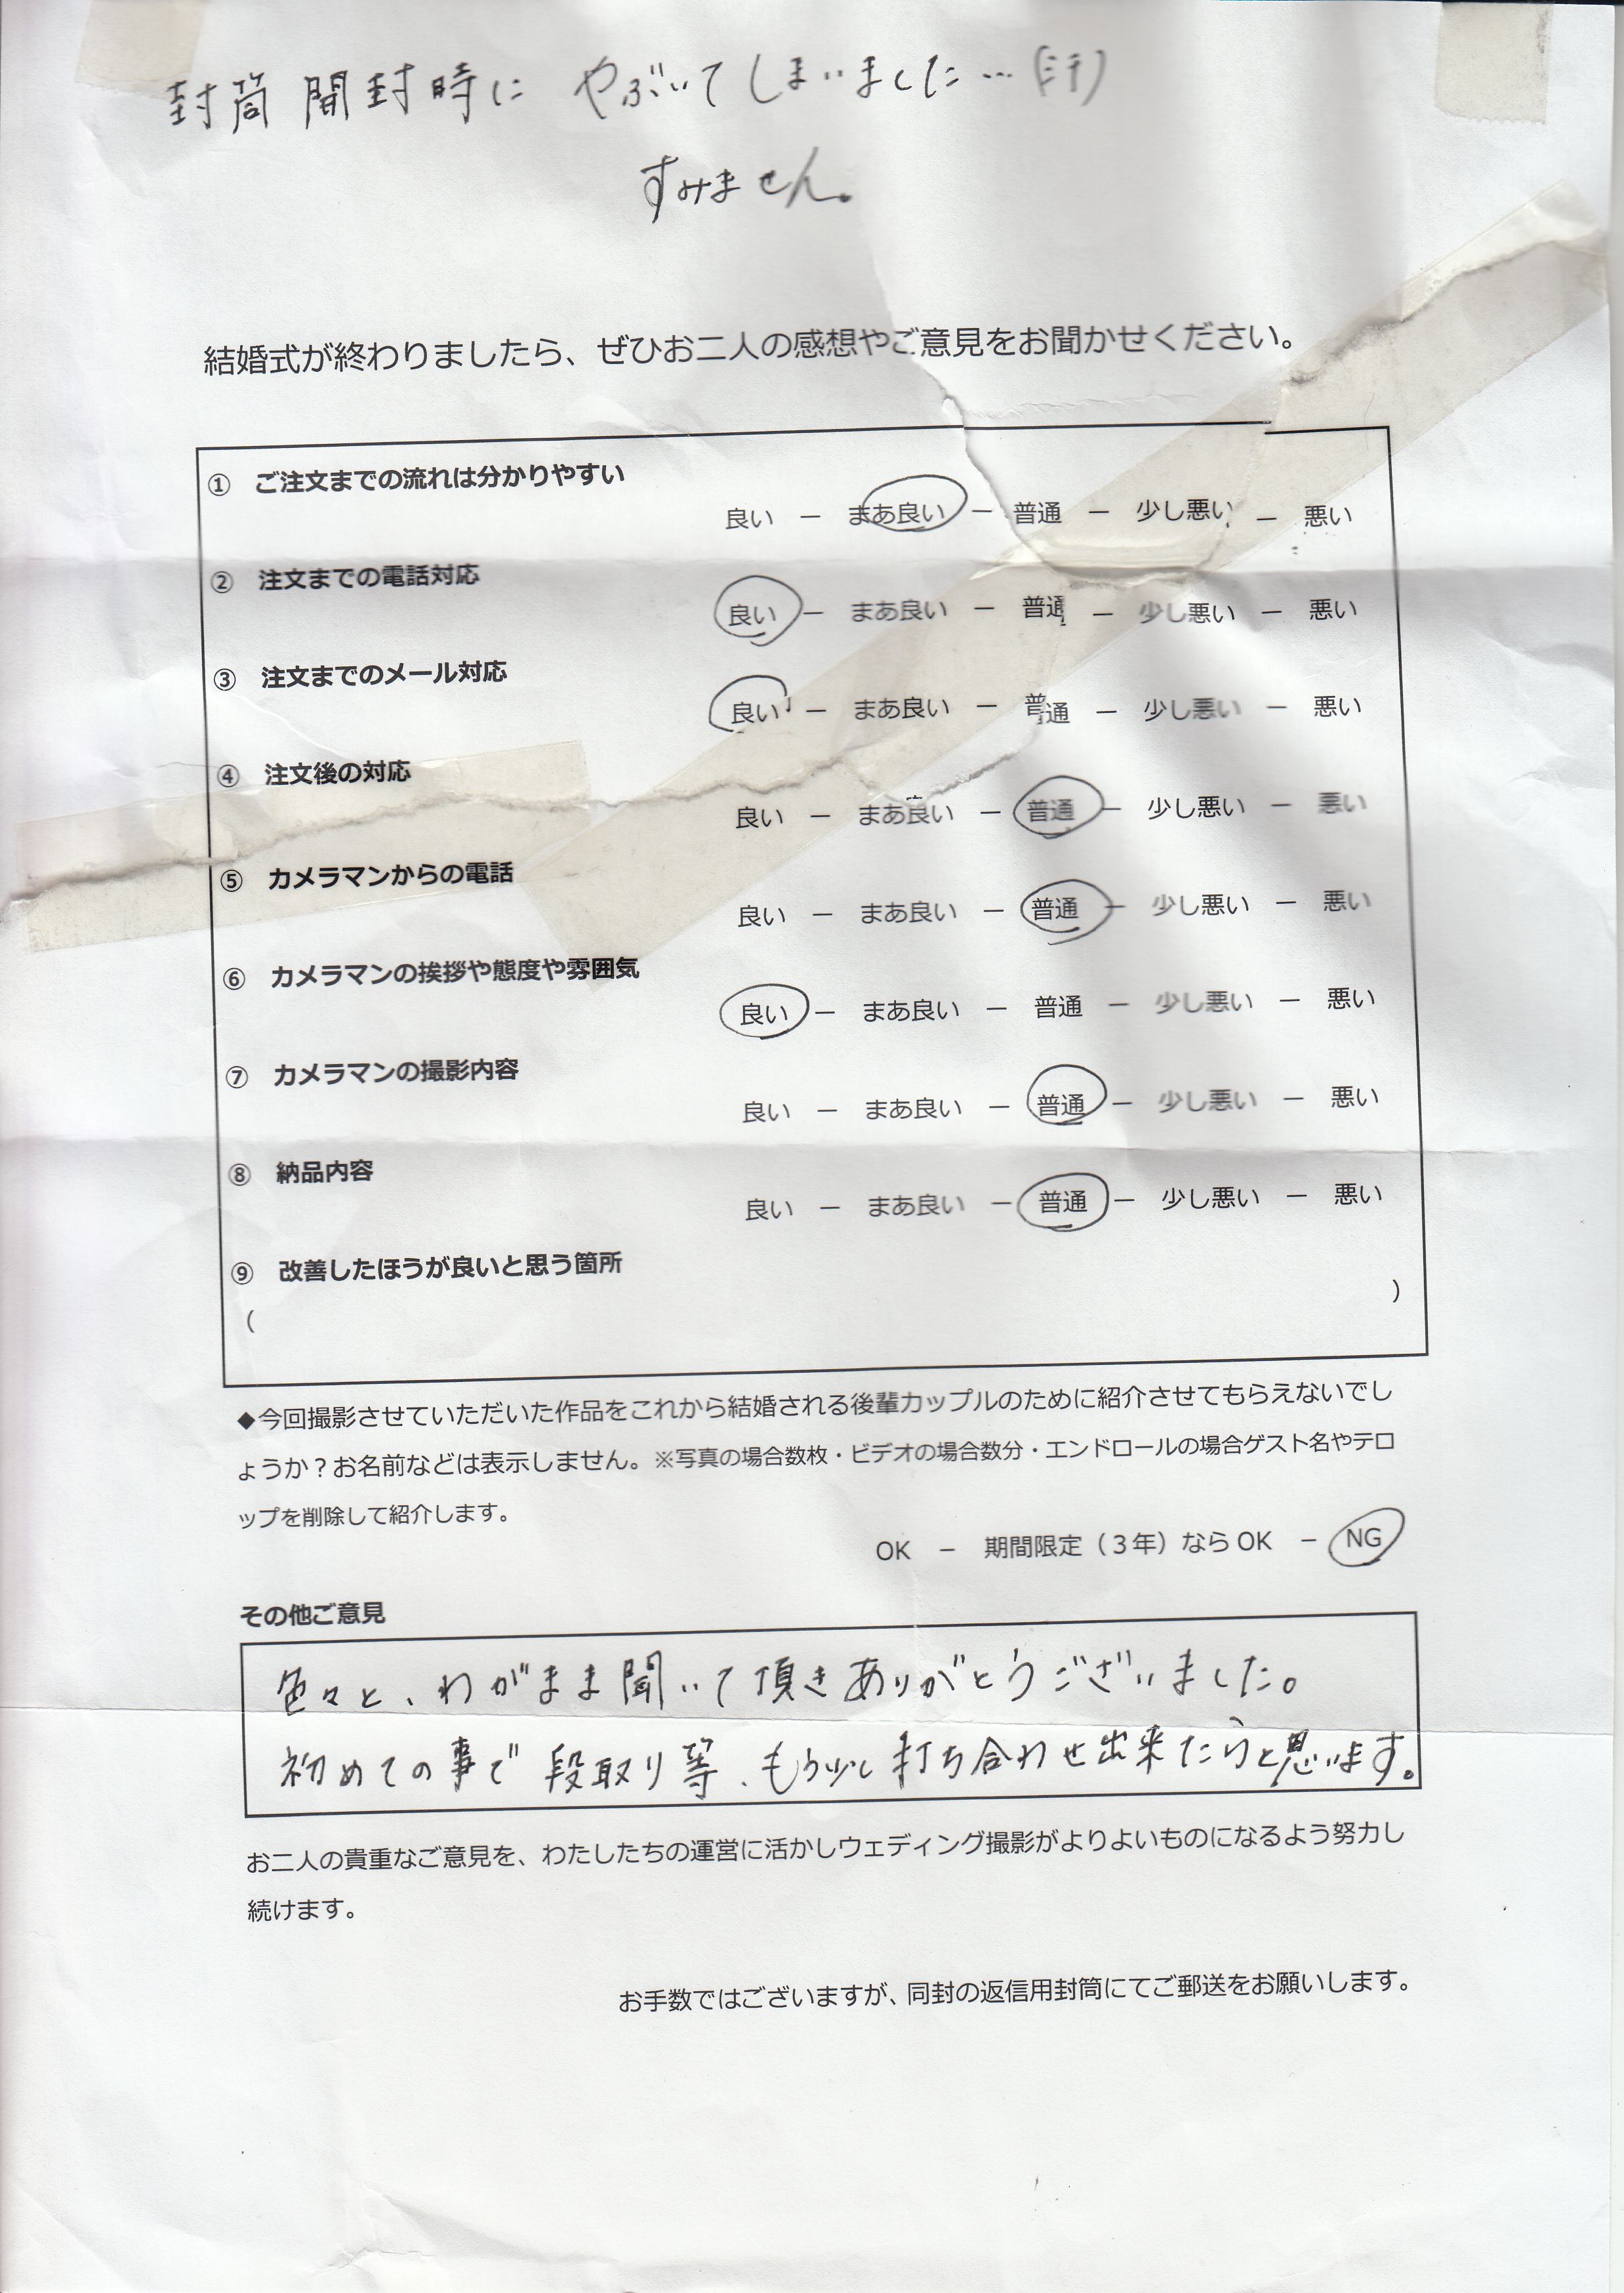 封筒開封時に やぶいてしまいました…(汗)
すみません。
結婚式が終わりましたら、ぜひお二人の感想やご意見をお聞かせください。
① ご注文までの流れは分かりやすい
良い － まあ良い － 普通 － 少し悪い － 悪い
② 注文までの電話対応
良い － まあ良い － 普通 － 少し悪い － 悪い
③ 注文までのメール対応
良い － まあ良い － 普通 － 少し悪い － 悪い
④ 注文後の対応
良い － まあ良い － 普通 － 少し悪い － 悪い
⑤ カメラマンからの電話
良い － まあ良い － 普通 － 少し悪い － 悪い
⑥ カメラマンの挨拶や態度や雰囲気
良い － まあ良い － 普通 － 少し悪い － 悪い
⑦ カメラマンの撮影内容
良い － まあ良い － 普通 － 少し悪い － 悪い
⑧ 納品内容
良い － まあ良い － 普通 － 少し悪い － 悪い
⑨ 改善したほうが良いと思う箇所
（ ）
◆今回撮影させていただいた作品をこれから結婚される後輩カップルのために紹介させてもらえないでし
ょうか？お名前などは表示しません。※写真の場合数枚・ビデオの場合数分・エンドロールの場合ゲスト名やテロ
ップを削除して紹介します。
OK － 期間限定（３年）なら OK － NG
その他ご意見
色々と、わがまま聞いて頂きありがとうございました。
初めての事で段取り等、もう少し打ち合わせ出来たらと思います。
お二人の貴重なご意見を、わたしたちの運営に活かしウェディング撮影がよりよいものになるよう努力し
続けます。
お手数ではございますが、同封の返信用封筒にてご郵送をお願いします。